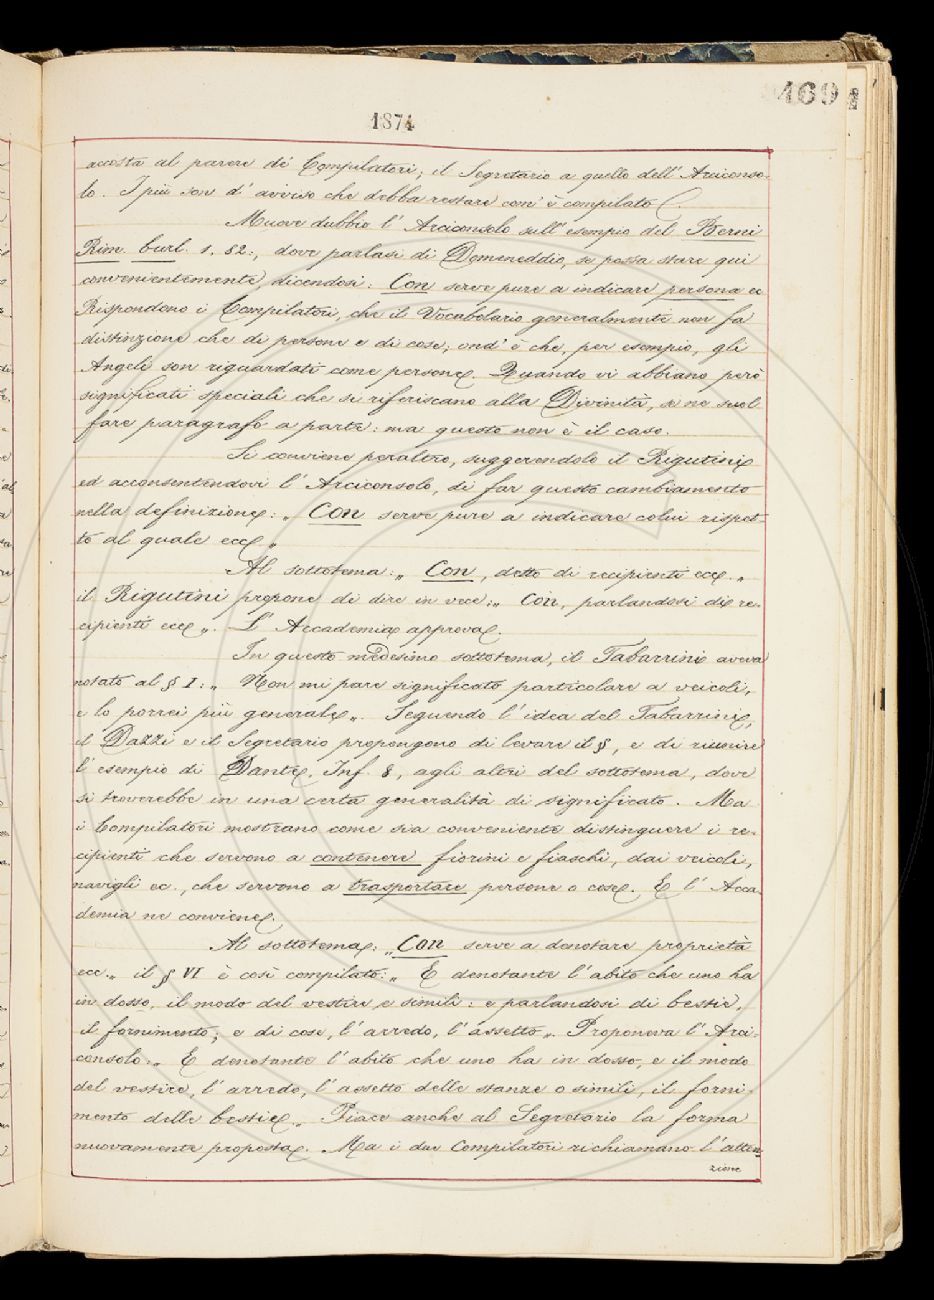 469
1874
accosta al parere de' Compilatori; il Segretario a quello dell' Arciconso-
lo. I più son d' avviso che debba restare com' è compilato.
Muove dubbio l' Arciconsolo sull' esempio del Berni
Rim. burl. 1. 82:, dove parlasi di Domeneddio, se possa stare qui
convenientemente, dicendosi: Con serve pure a indicare persona ec
Rispondono i Compilatori, che il Vocabolario generalmente non fa
distinzione che di persone e di cose; ond' è che, per esempio, gli
Angeli son riguardati come persone. Quando vi abbiano però
significati speciali che si riferiscano alla Divinità, se ne suol
fare paragrafo a parte: ma questo non è il caso.
Si conviene peraltro, suggerendolo il Rigutini
ed acconsentendovi l' Arciconsolo, di far questo cambiamento
nella definizione: „ Con serve pure a indicare colui rispet-
to al quale ecc „
Al sottotema: „ Con, detto di recipienti ecc. „
il Rigutini propone di dire in vece: „ Con, parlandosi di re-
cipienti ecc „. L' Accademia approva.
In questo medesimo sottotema, il Tabarrini aveva
notato al § I: „ Non mi pare significato particolare a veicoli,
e lo porrei più generale „. Seguendo l' idea del Tabarrini,
il Dazzi e il Segretario propongono di levare il §, e di riunire
l' esempio di Dante. Inf. 8., agli altri del sottotema, dove
si troverebbe in una certa generalità di significato. Ma
i Compilatori mostrano come sia conveniente distinguere i re-
cipienti che servono a contenere fiorini e fiaschi, dai veicoli,
navigli ec., che servono a trasportare persone o cose. E l' Acca-
demia ne conviene.
Al sottotema: „ Con serve a denotare proprietà
ecc. „ il § VI è così compilato: „ E denotante l' abito che uno ha
in dosso, il modo del vestire e simili: e parlandosi di bestie,
il fornimento; e di cose, l' arredo, l' assetto „. Proponeva l' Arci-
consolo: „ E denotante l' abito che uno ha in dosso, e il modo
del vestire, l' arredo, l' assetto delle stanze o simili, il forni-
mento delle bestie „. Piace anche al Segretario la forma
nuovamente proposta. Ma i due Compilatori richiamano l' atten-
zione